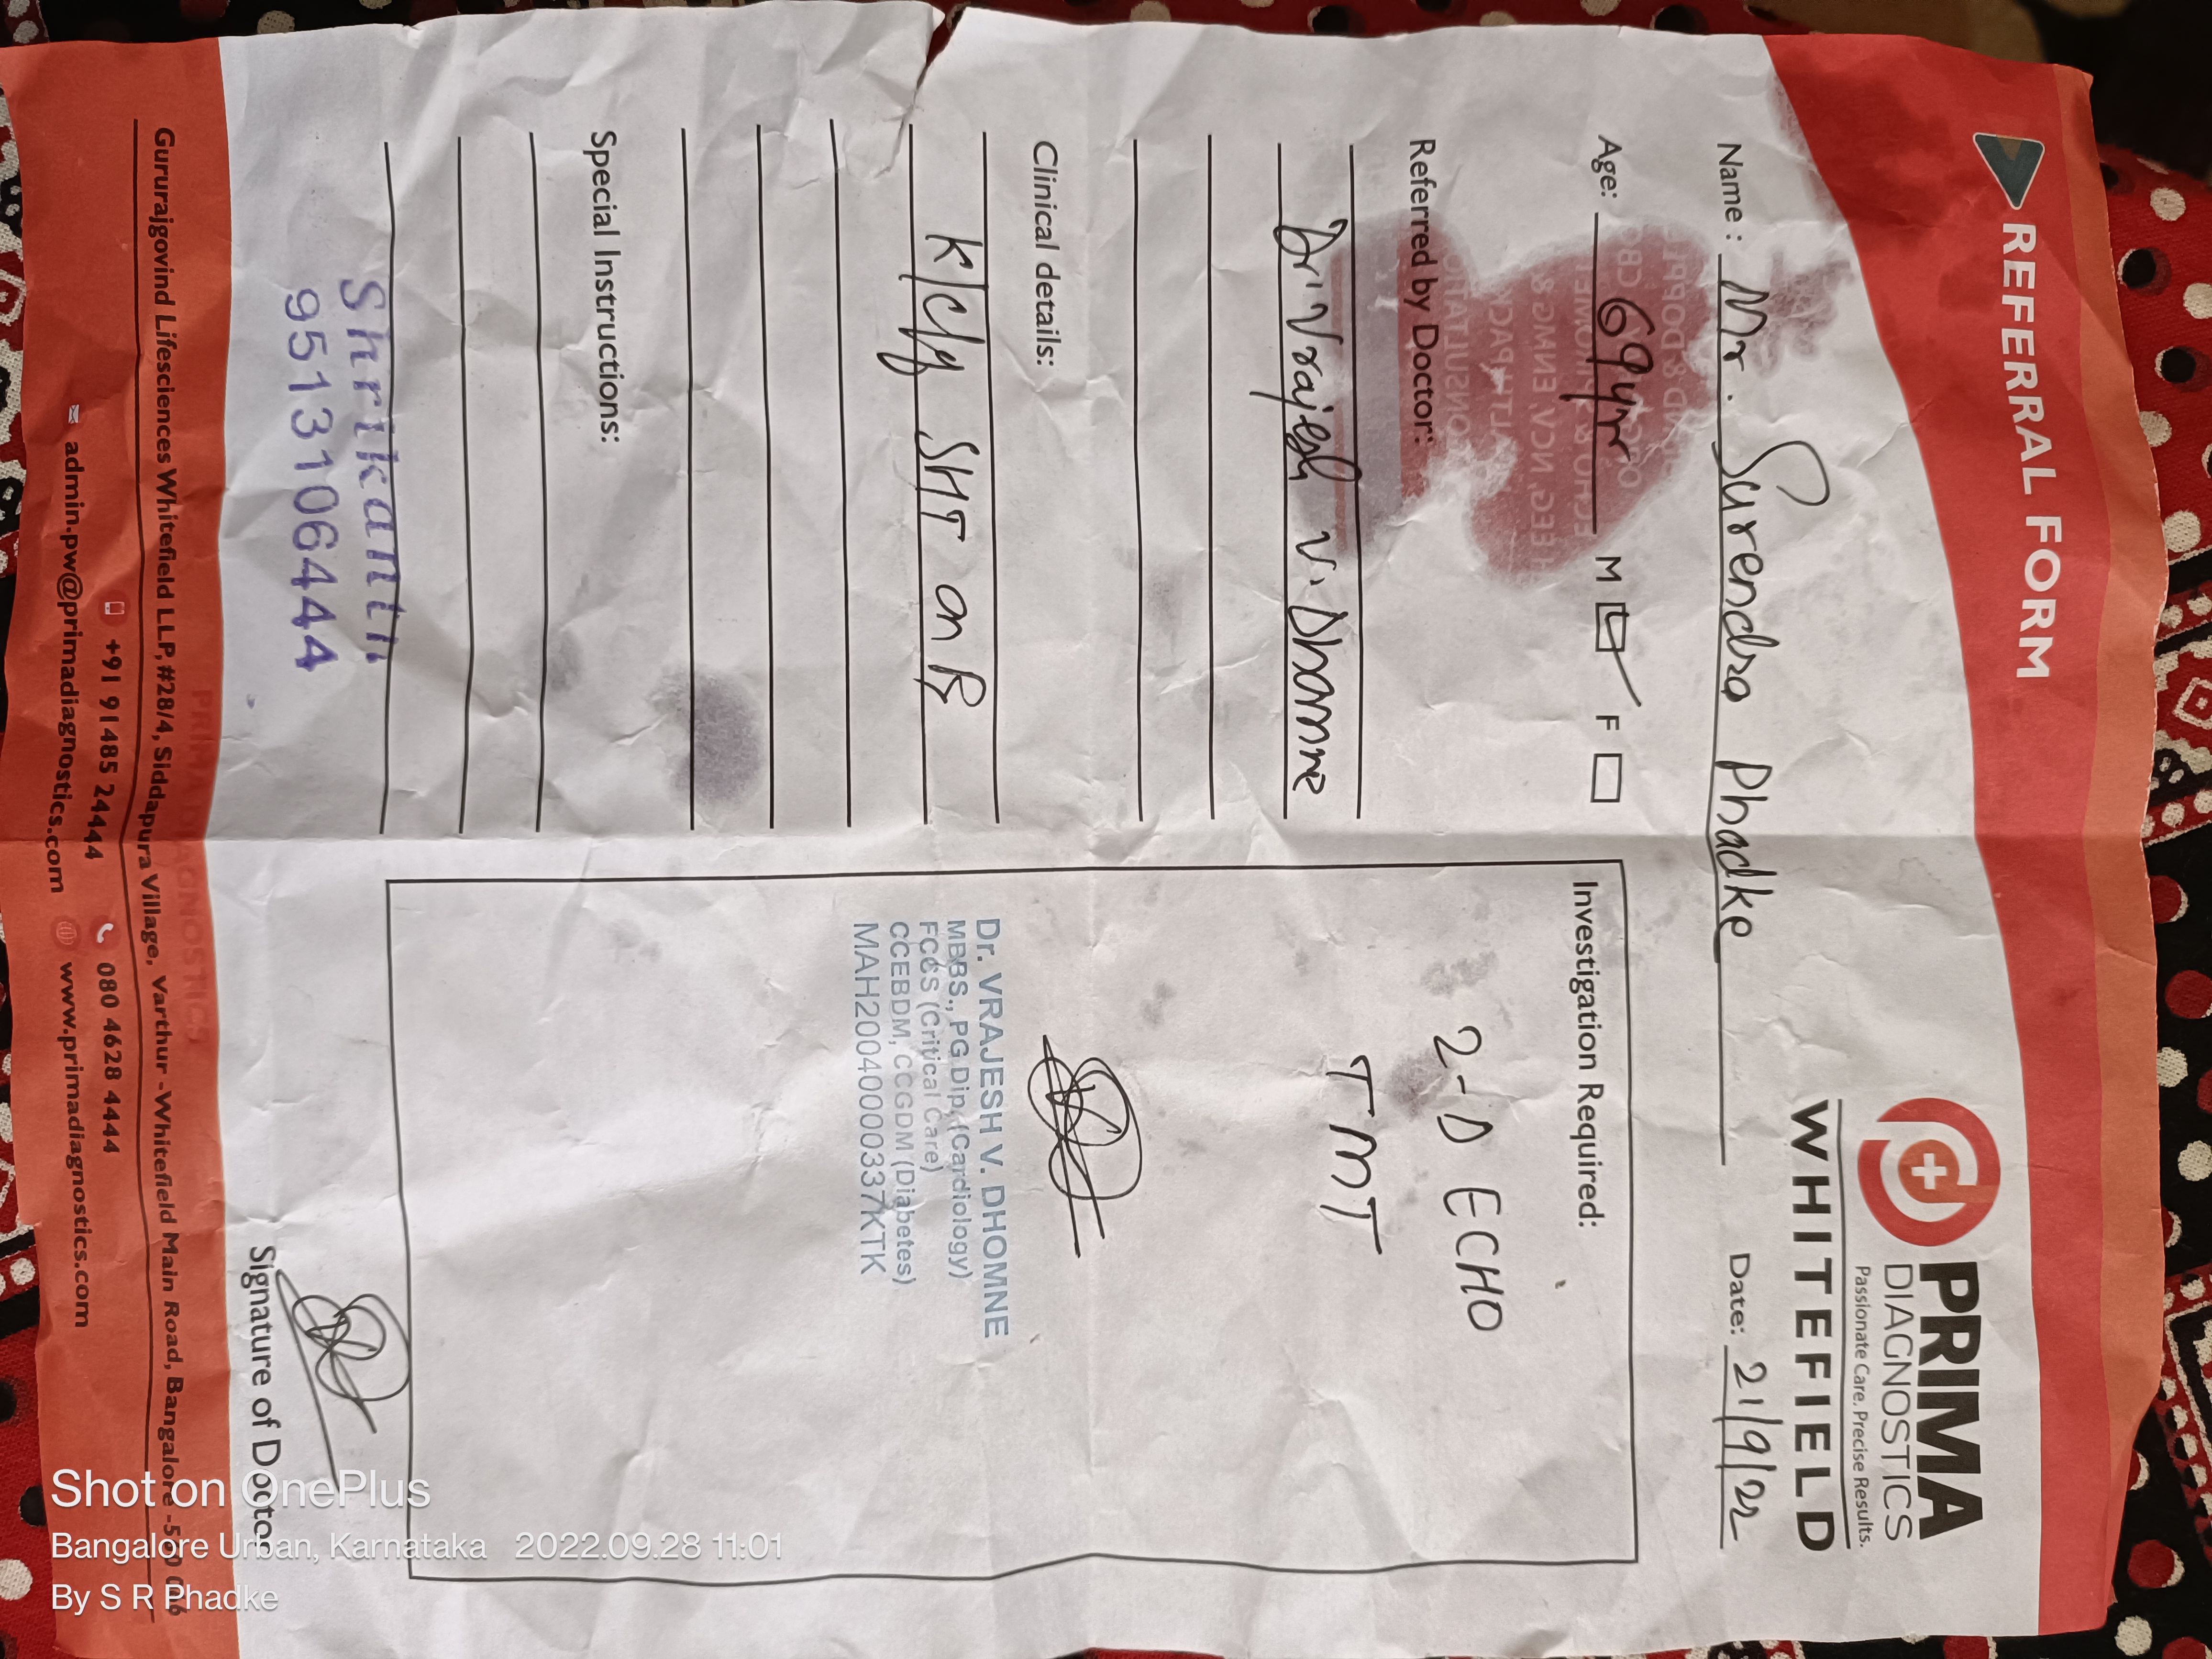 REFERRAL FORM
PRIMA
DIAGNOSTICS
Passionate Care. Precise Results.
WHITEFIELD
Name : Mr. Surendra Phadke
Date: 21/9/22
Age: 69yrr M F
Referred by Doctor:
Dr. Vrajesh V. Dhomne
Clinical details:
K/C/o SHT on Rx
Special Instructions:
Shrikanth
9513106444
Investigation Required:
2-D ECHO
TMT
Dr. VRAJESH V. DHOMNE
MBBS., PG.Dip.(Cardiology)
FCCS (Critical Care)
CCEBDM, CCGDM (Diabetes)
MAH20040000337KTK
Signature of Doctor
Gururajgovind Lifesciences Whitefield LLP, #28/4, Siddapura Village, Varthur -Whitefield Main Road, Bangalore -560 066
+91 91485 24444 080 4628 4444
admin.pw@primadiagnostics.com www.primadiagnostics.com
Shot on OnePlus
Bangalore Urban, Karnataka 2022.09.28 11:01
By S R Phadke